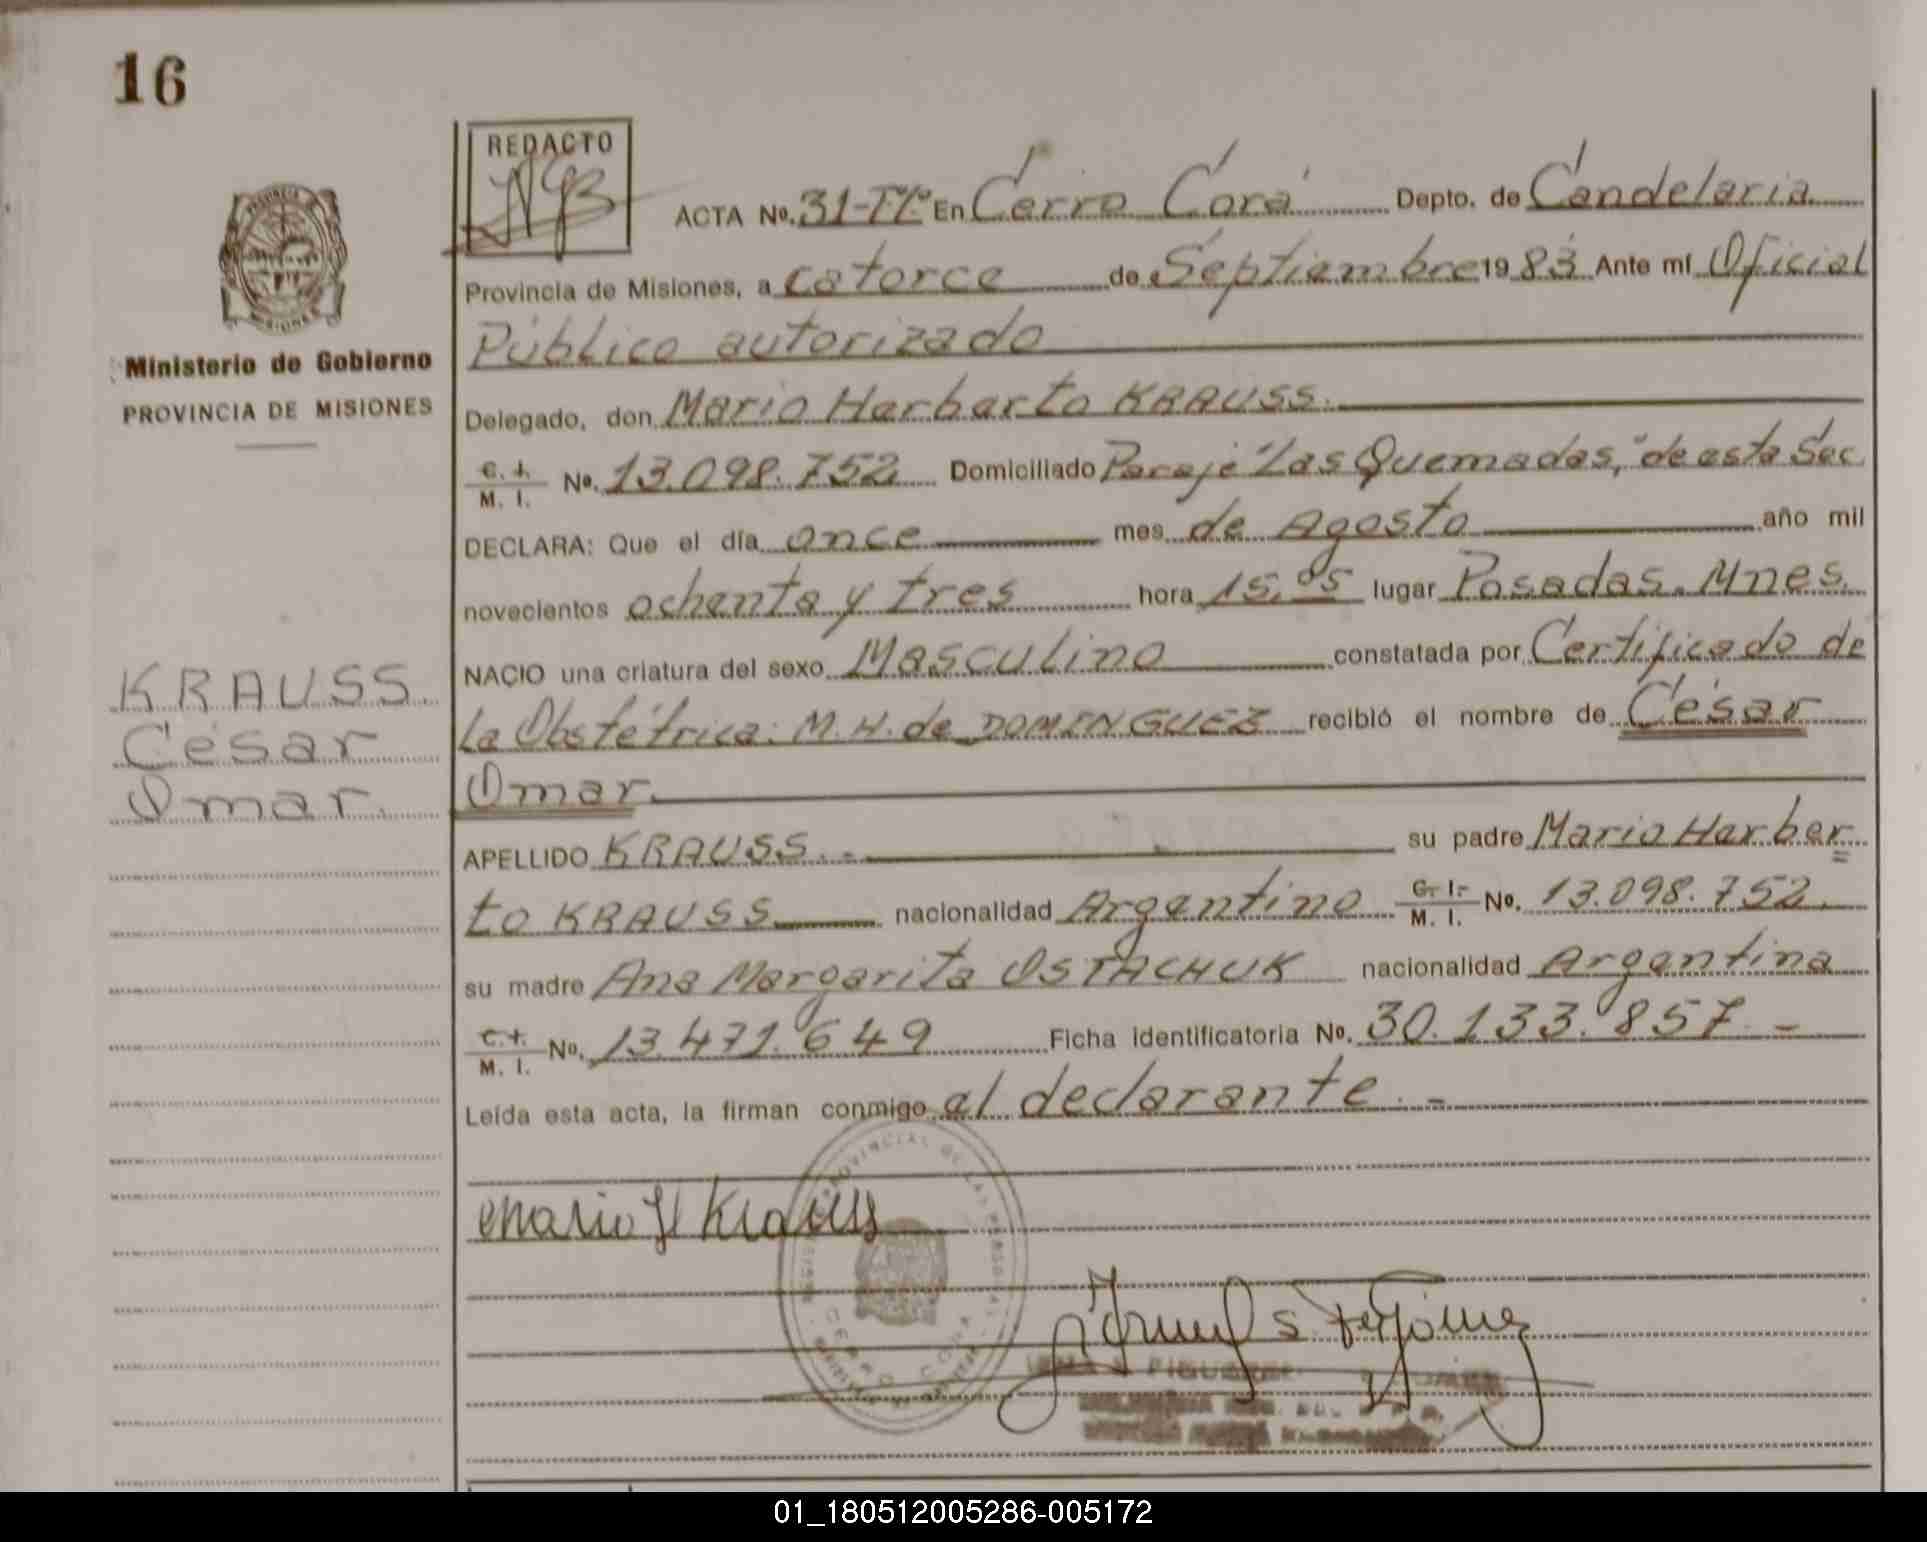 16
REDACTO
ACTA No. 31-Tº Iº En Cerro Corá Depto. de Candelaria
Provincia de Misiones, a catorce de Septiembre 1983 Ante mí Oficial
Público autorizado
Ministerio de Gobierno
PROVINCIA DE MISIONES
Delegado, don Mario Harberto KRAUSS.
C. I. M. I. No. 13.098.752 Domiciliado Paraje "Las Quemadas," de esta Sec.
DECLARA: Que el día once mes de Agosto año mil
novecientos ochenta y tres hora 15,05 lugar Posadas. Mnes.
NACIO una criatura del sexo Masculino constatada por Certificado de
la Obstétrica: M.H. de DOMINGUEZ recibió el nombre de César
Omar.
KRAUSS.
César
Omar.
APELLIDO KRAUSS. - su padre Mario Harber=
to KRAUSS nacionalidad Argentino C. I. M. I. No. 13.098.752.
su madre Ana Margarita OSTACHUK nacionalidad Argentina
C. I. M. I. No. 13.471.649 Ficha identificatoria No. 30.133.857. -
Leída esta acta, la firman conmigo el declarante. -
Mario H Krauss
CERRO CORA
01_180512005286-005172